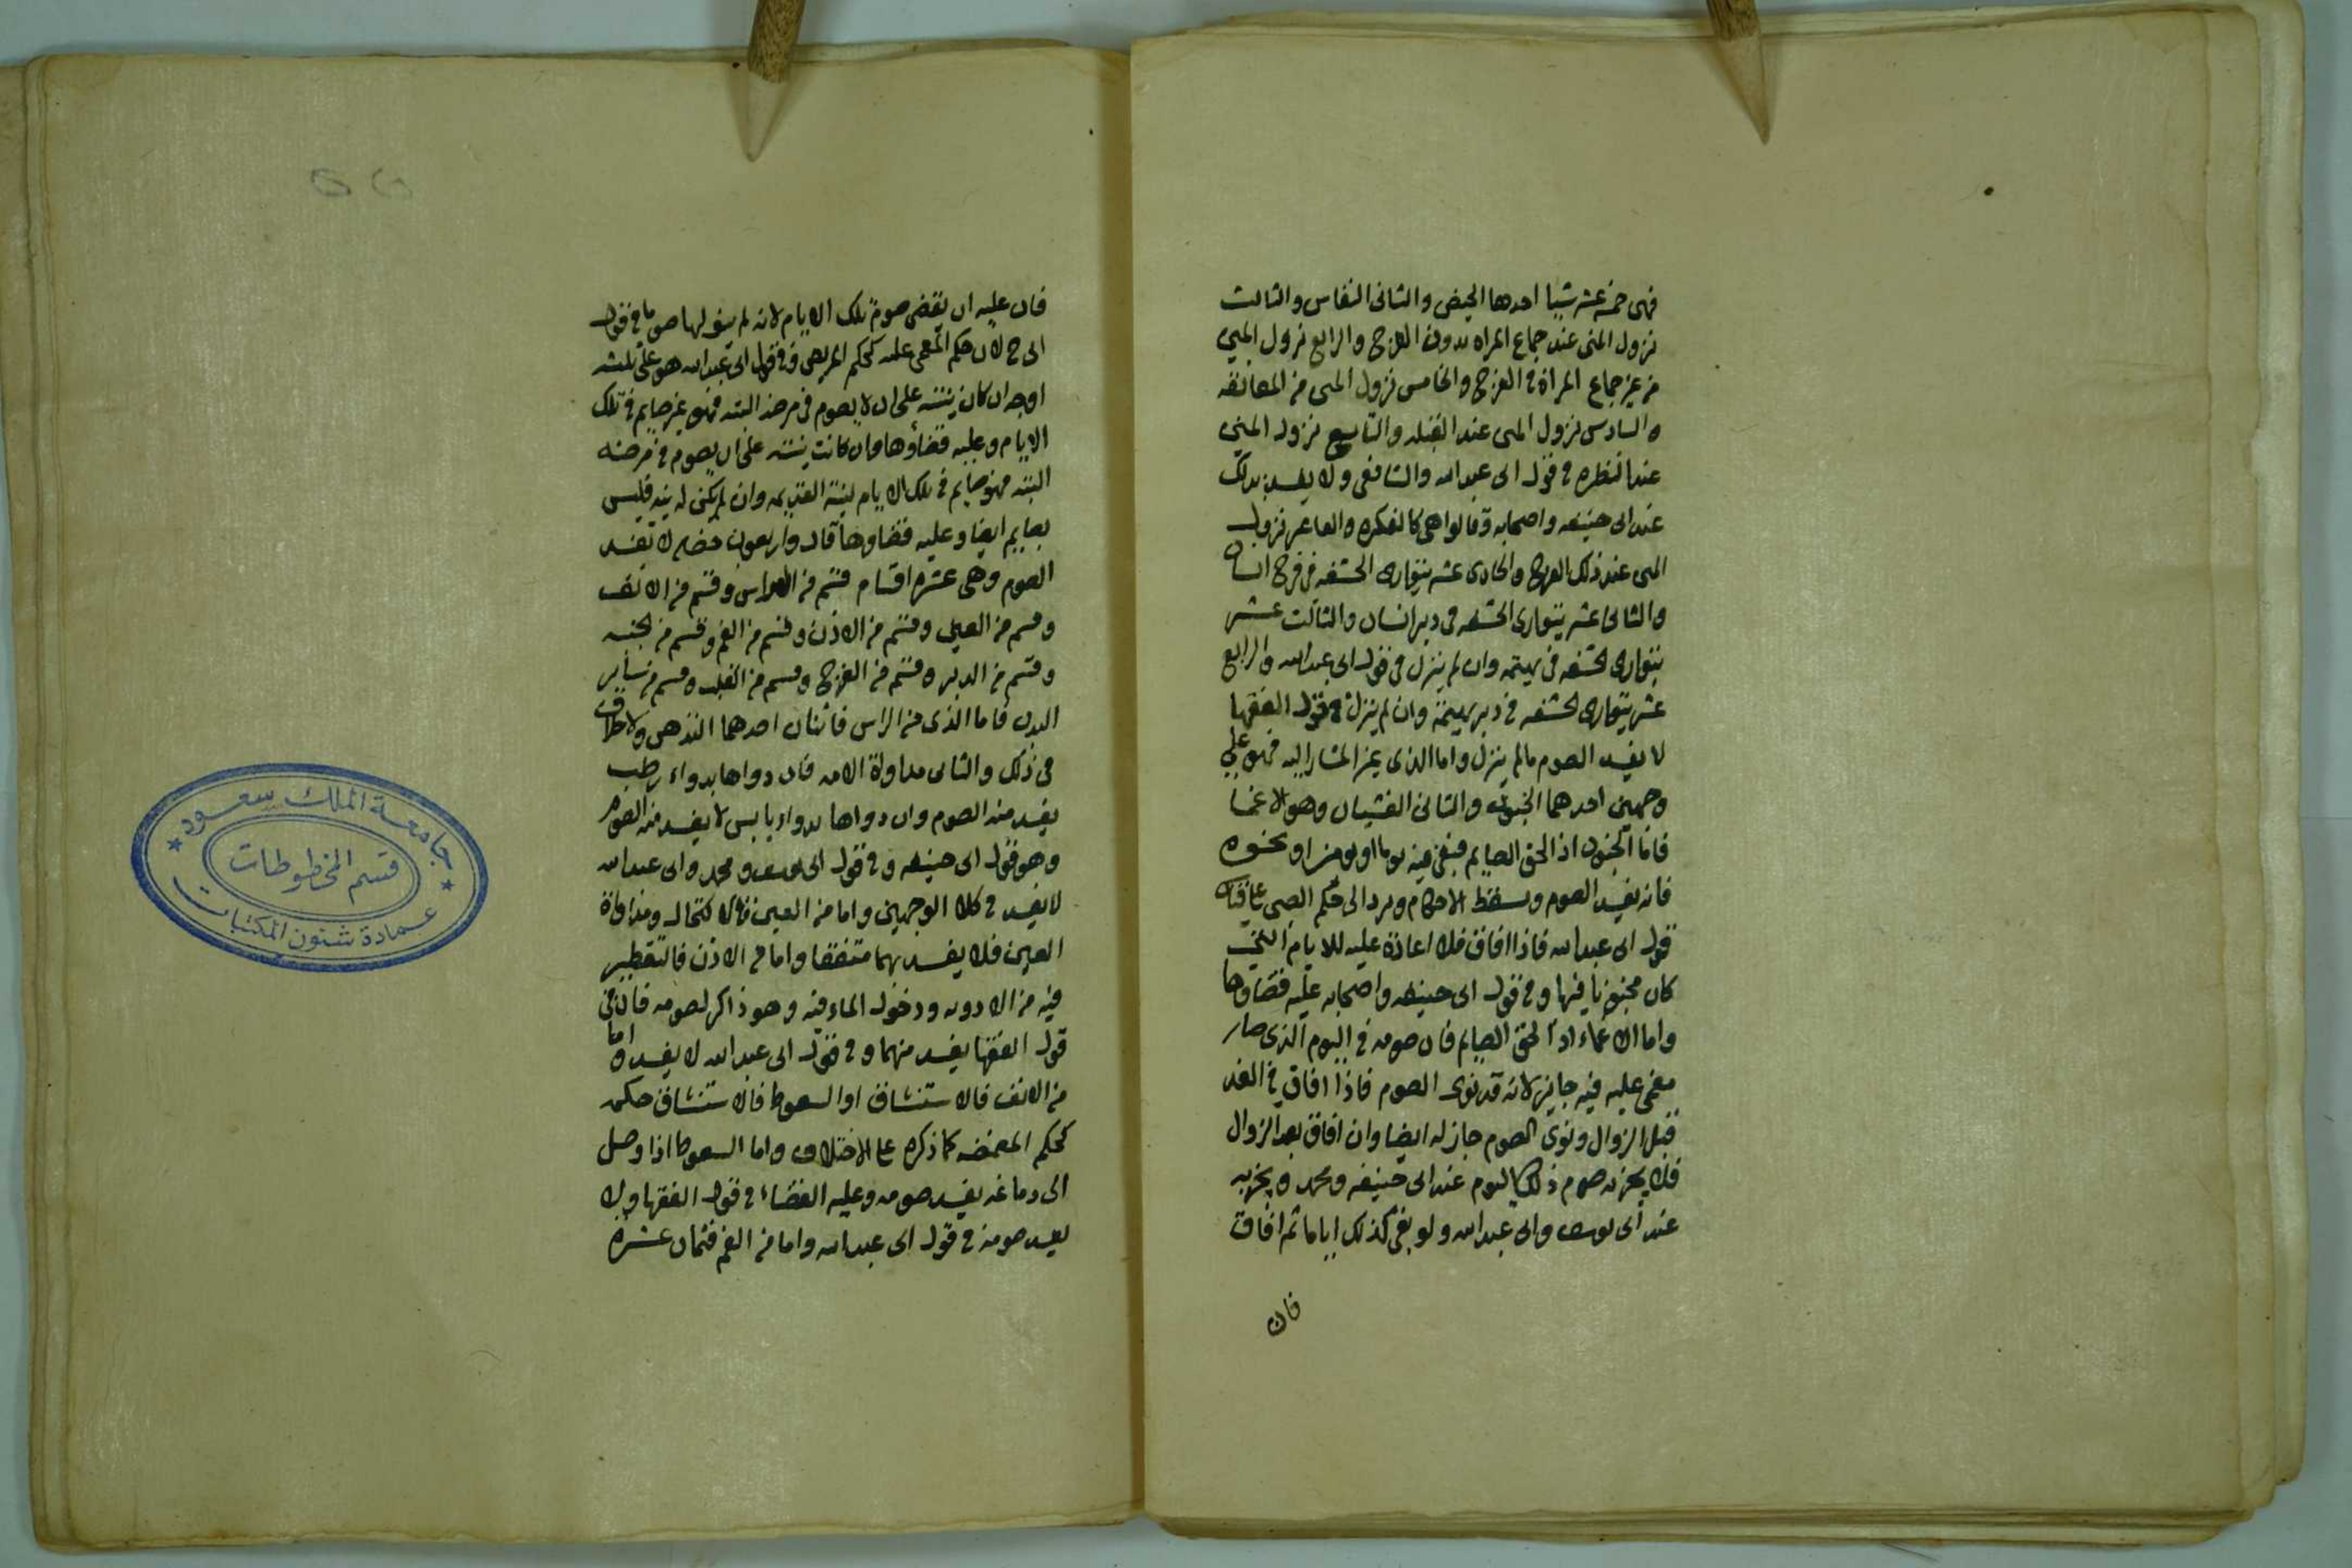 فهى خمسة عشر شيا احدها الحيض والثانى النفاس والثالث
نزول المنى عند جماع المراه بدون الفرج والرابع نزول المني
من غير جماع المراة فى الفرج والخامس نزول المنى من المعانقه
والسادس نزول المنى عند القبله والتاسع نزول المني
عند النظره فى قول ابى عبد الله والشافعى ولا يفسد بذلك
عند ابى حنيفه واصحابه وقالوا هى كالفكره والعاشر نزول
المنى عند ذلك الفرج والحادى عشر يتوارى الحشفه فى فرج انسان
والثانى عشر يتوارى الحشفه فى دبر انسان والثالث عشر
يتوارى الحشفه فى بهيمه وان لم ينزل فى قول ابى عبد الله والرابع
عشر يتوارى الحشفه فى دبر بهيمة وان لم ينزل فى قول الفقها
لا يفسد الصوم مالم ينزل واما الذى عن المشار اليه فهو علي
وجهين احدهما الجنون والثانى الغشيان وهو الاغما
فاما الجنون اذا لحق الصايم فبقى فيه يوما او يومين او نحوه
فانه يفسد الصوم ويسقط الاحكام ويرد الى حكم الصبى
قول ابى عبد الله فاذا افاق فلا اعادة عليه للايام التي
كان مجنونا فيها وفى قول ابى حنيفه واصحابه عليه قضاوها
واما الاغماء اذا لحق الصايم فان صومه فى اليوم الذى صار
مغمى عليه فيه جايز لانه قد نوى الصوم فاذا افاق فى الغد
قبل الزوال ونوى الصوم جاز له ايضا وان افاق بعد الزوال
فلا يجزيه صوم ذلك اليوم عند ابى حنيفه ومحمد ويجزيه
عند ابى يوسف وابى عبد الله ولو بقى كذلك اياما ثم افاق
فان
فان عليه ان يقضى صوم تلك الايام لانه لم ينو لها صوما فى قول
ابى ح لان حكم المغمى عليه كحكم المريض وفى قول ابى عبد الله هو على ثلثه
اوجه ان كان نيته على ان لا يصوم فى مرضه البته فهو غير صايم فى تلك
الايام وعليه قضاؤها وان كانت نيته على ان يصوم فى مرضه
البته فهو صايم فى تلك الايام لنيته القديمه وان لم يكن له نيه فليس
بصايم ايضا وعليه قضاوها قال واربعون خصله لا تفسد
الصوم وهى عشره اقسام قسم من الراس وقسم من الانف
وقسم من العين وقسم من الاذن وقسم من الفم وقسم من
وقسم من الدبر وقسم من الفرج وقسم من القلب وقسم من ساير
البدن فاما الذى من الراس فاثنان احدهما التدهن ولا خلاف
فى ذلك والثانى مداواة الامه فان دواها بدواء رطب
يفسد منه الصوم وان دواها بدواء يابس لا يفسد منه الصوم
وهو قول ابى حنيفه وفى قول ابى يوسف ومحمد وابى عبد الله
لا يفسد فى كلا الوجهين واما من العين فالاكتحال ومداواة
العين فلا يفسد بهما متفقا واما من الاذن فالتقطير
فيه من الادويه ودخول الماء فيه وهو ذاكر لصومه فان فى
قول الفقها يفسد منهما وفى قول ابى عبد الله لا يفسد واما
من الانف فالاستنشاق او السعوط فالاستنشاق حكمه
كحكم المضمضه كما ذكره على الاختلاف واما السعوط اذا وصل
الى دماغه يفسد صومه وعليه القضاء فى قول الفقها ولا
يفسد صومه فى قول ابى عبد الله واما من الفم فثمان عشرة
جامعة الملك سعود
قسم المخطوطات
عمادة شئون المكتبات